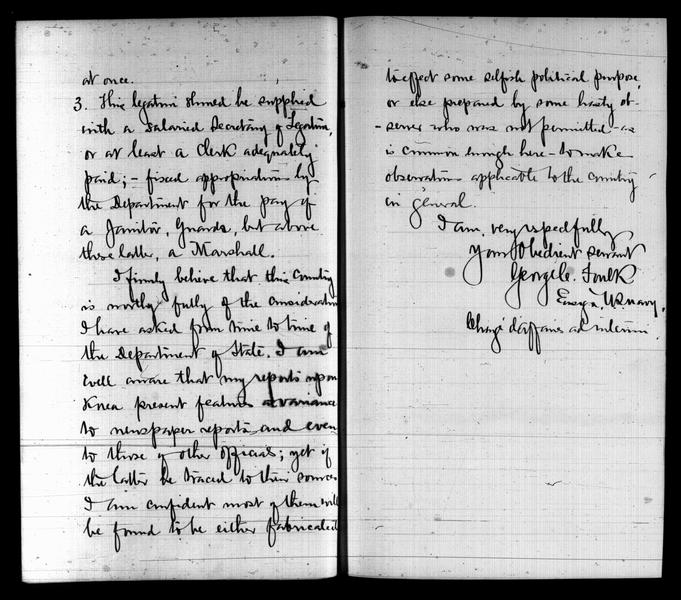 at once.
3. This legation should be supplied
with a salaried Secretary of Legation,
or at least a Clerk adequately
paid; - fixed appropriation by
the Department for the pay of
a Janitor, Guards, but above
these latter, a Marshall.
I firmly believe that this Country
is worthy fully of the consideration
I have asked from time to time of
the Department of State. I am
well aware that my reports upon
Korea present features at variance
to newspaper reports and even
to those of other officials; yet if
the latter be traced to their sources
I am confident most of them will
be found to be either fabricated
to effect some selfish political purpose,
or else prepared by some hasty ob-
-server who was not permitted - as
is common enough here - to make
observations applicable to the country
in general.
I am, very respectfully
Your Obedient servant
George C. Foulk
Ensign, U.S. Navy.
Chargé d'affaires ad interim.